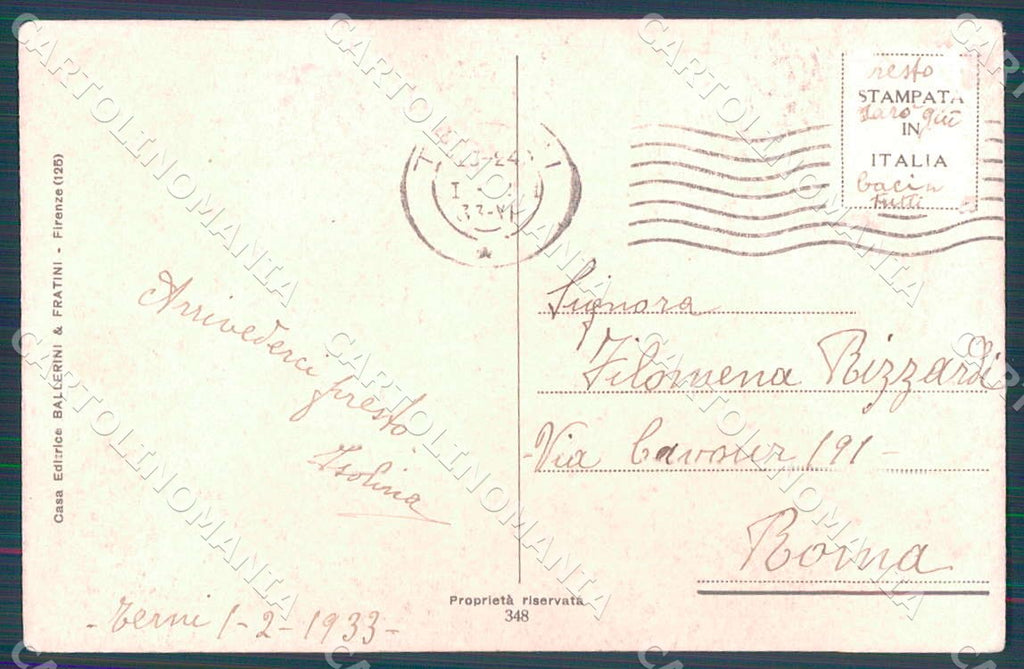 Casa Editrice BALLERINI & FRATINI - Firenze (125)
Arrivederci presto
Isolina
- Terni 1-2-1933-
Proprietà riservata
348
23-24
33-XI
presto
STAMPATA
sarò giù
IN
ITALIA
baci a
tutti
Signora
Filomena Rizzardi
- Via Cavour 191 -
Roma
CARTOLINOMANIA